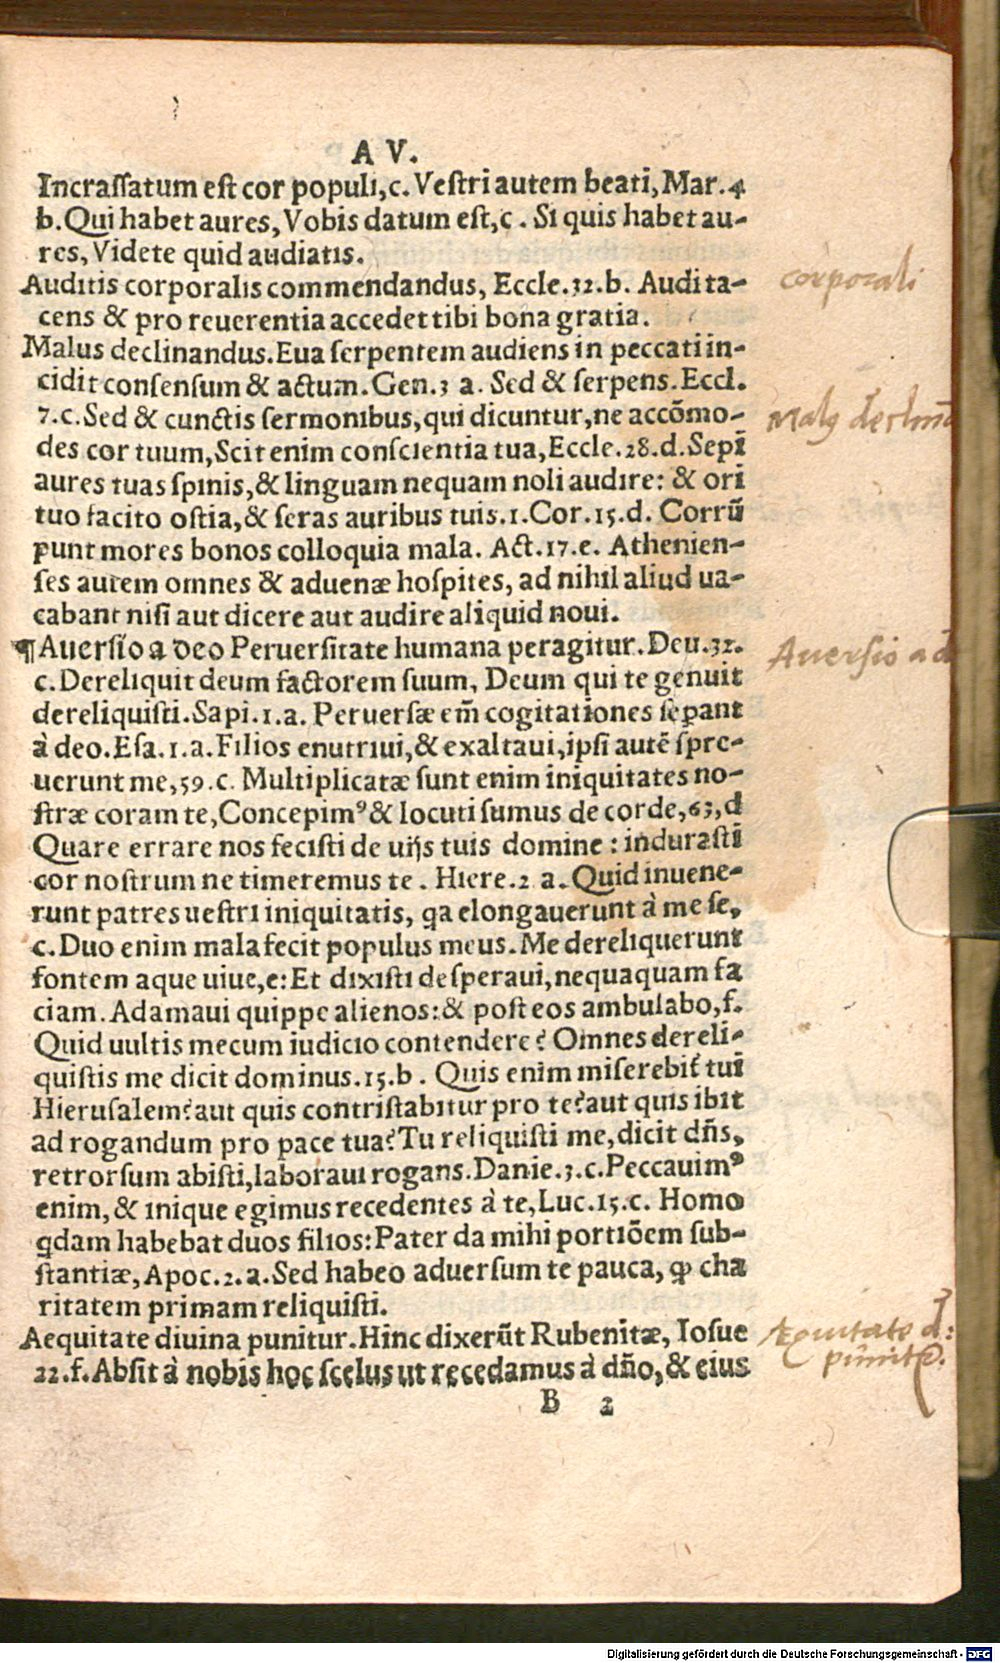 A V.
Incraſſatum eſt cor populi,c. Veſtri autem beati, Mar.4
b.Qui habet aures, Vobis datum eſt,c. Si quis habet au-
res, Videte quid audiatis.
Auditis corporalis commendandus, Eccle.32.b. Audi ta-
cens & pro reuerentia accedet tibi bona gratia.
corporali
Malus declinandus.Eua ſerpentem audiens in peccati in-
cidit conſenſum & actum.Gen.3 a. Sed & ſerpens.Eccl.
7.c.Sed & cunctis ſermonibus,qui dicuntur,ne accōmo-
Malꝰ declinā
des cor tuum,Scit enim conſcientia tua,Eccle.28.d.Sepī
aures tuas ſpinis,& linguam nequam noli audire: & ori
tuo facito oſtia,& ſeras auribus tuis.1.Cor.15.d. Corrū
punt mores bonos colloquia mala. Act.17.e. Athenien-
ſes autem omnes & aduenæ hoſpites, ad nihil aliud ua-
cabant niſi aut dicere aut audire aliquid noui.
¶Auerſio a deo Peruerſitate humana peragitur.Deu.32.
Auerſio a d
c.Dereliquit deum factorem ſuum, Deum qui te genuit
dereliquiſti.Sapi.1.a. Peruerſæ em̄ cogitationes ſepant
à deo.Eſa.1.a.Filios enutriui,& exaltaui,ipſi autē ſpre-
uerunt me,59.c. Multiplicatæ ſunt enim iniquitates no-
ſtræ coram te,Concepimꝰ & locuti ſumus de corde,63,d
Quare errare nos feciſti de uijs tuis domine : induraſti
cor noſtrum ne timeremus te. Hiere.2 a. Quid inuene-
runt patres ueſtri iniquitatis, qa elongauerunt à me ſe,
c.Duo enim mala fecit populus meus.Me dereliquerunt
fontem aque uiue,e:Et dixiſti deſperaui,nequaquam fa
ciam. Adamaui quippe alienos:& poſt eos ambulabo,f.
Quid uultis mecum iudicio contendere? Omnes dereli-
quiſtis me dicit dominus.15.b. Quis enim miſerebit́ tuī
Hieruſalem?aut quis contriſtabitur pro te?aut quis ibit
ad rogandum pro pace tua?Tu reliquiſti me,dicit dn̄s,
retrorſum abiſti,laboraui rogans.Danie.3.c.Peccauimꝰ
enim,& inique egimus recedentes à te,Luc.15.c. Homo
qdam habebat duos filios:Pater da mihi portiōem ſub-
ſtantiæ, Apoc.2.a.Sed habeo aduerſum te pauca, ꝙ cha
ritatem primam reliquiſti.
Aequitate diuina punitur.Hinc dixerūt Rubenitæ, Ioſue
Æquitate d:
punitr.
22.f.Abſit à nobis hoc ſcelus ut recedamus à dn̄o,& eius
B 2
Digitalisierung gefördert durch die Deutsche Forschungsgemeinschaft - DFG